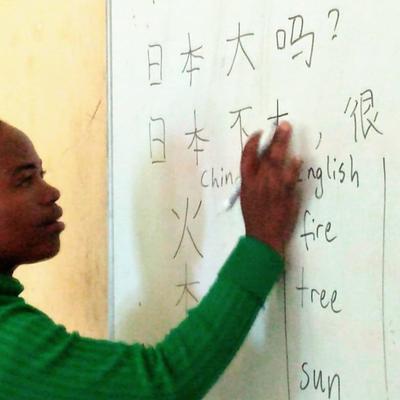 日本大吗?
日本不大，很
Chin English
火 fire
木 tree
sun